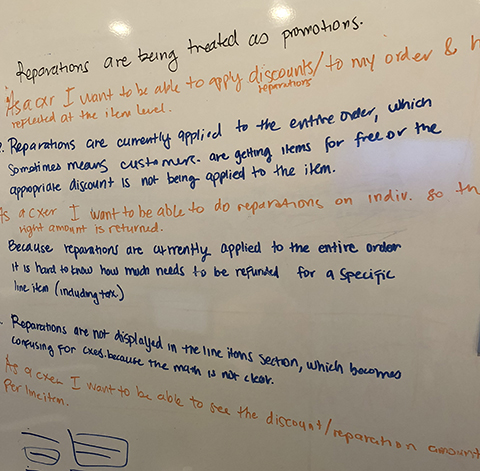 Reparations are being treated as promotions.
As a cxr I want to be able to apply discounts/ to my order & h
reparations
reflected at the item level.
. Reparations are currently applied to the entire order, which
Sometimes means customers. are getting items for free or the
appropriate discount is not being applied to the item.
As a cxer I want to be able to do reparations on indiv. so th
right amount is returned.
Because reparations are currently applied to the entire order
it is hard to know how much needs to be refunded for a specific
line item (including tax)
. Reparations are not displayed in the line items section, which becomes
confusing for cxes. because the math is not clear.
As a cxer I want to be able to see the discount/reparation amount
per line item.